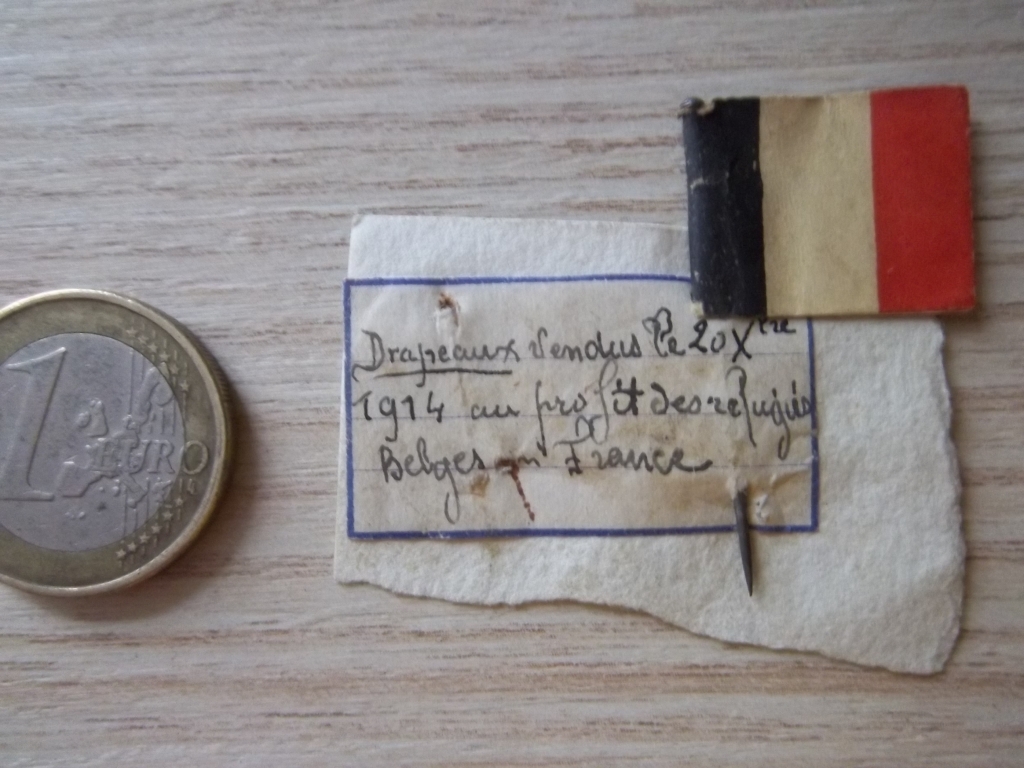 1 EURO
Drapeaux Vendus le 20 Xbre
1914 au profit des refugiés
Belges en France